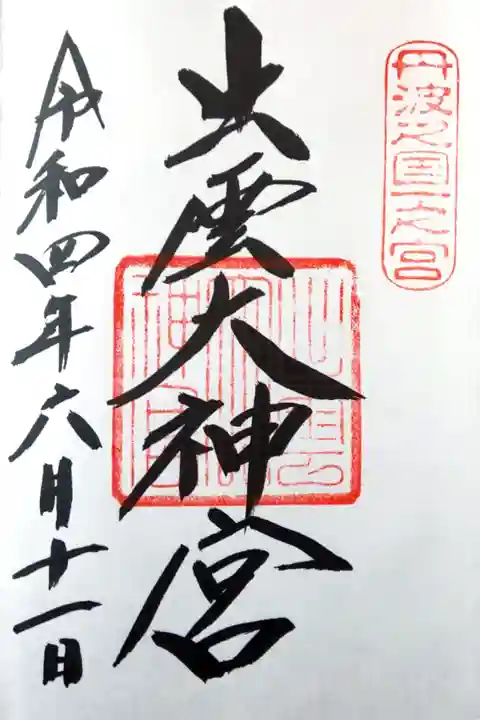 丹波之国一之宮
出雲大神宮
令和四年六月十一日